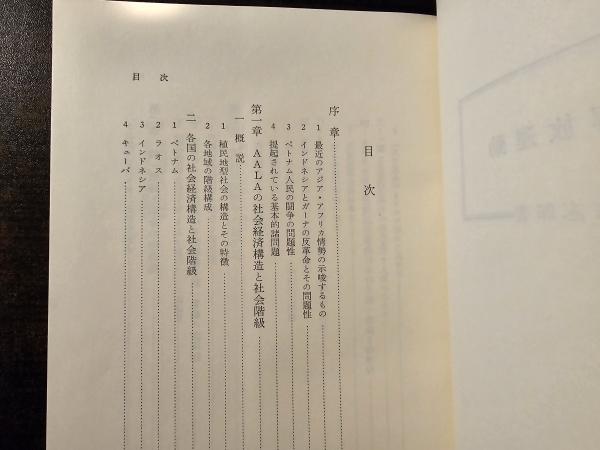 目次
序章
1 最近のアジア・アフリカ情勢の示唆するもの
2 インドネシアとガーナの反革命とその問題性
3 ベトナム人民の闘争の問題性
4 提起されている基本的諸問題
第一章 AALAの社会経済構造と社会階級
一 概説
1 植民地型社会の構造とその特徴
2 各地域の階級構成
二 各国の社会経済構造と社会階級
1 ベトナム
2 ラオス
3 インドネシア
4 キューバ
目次